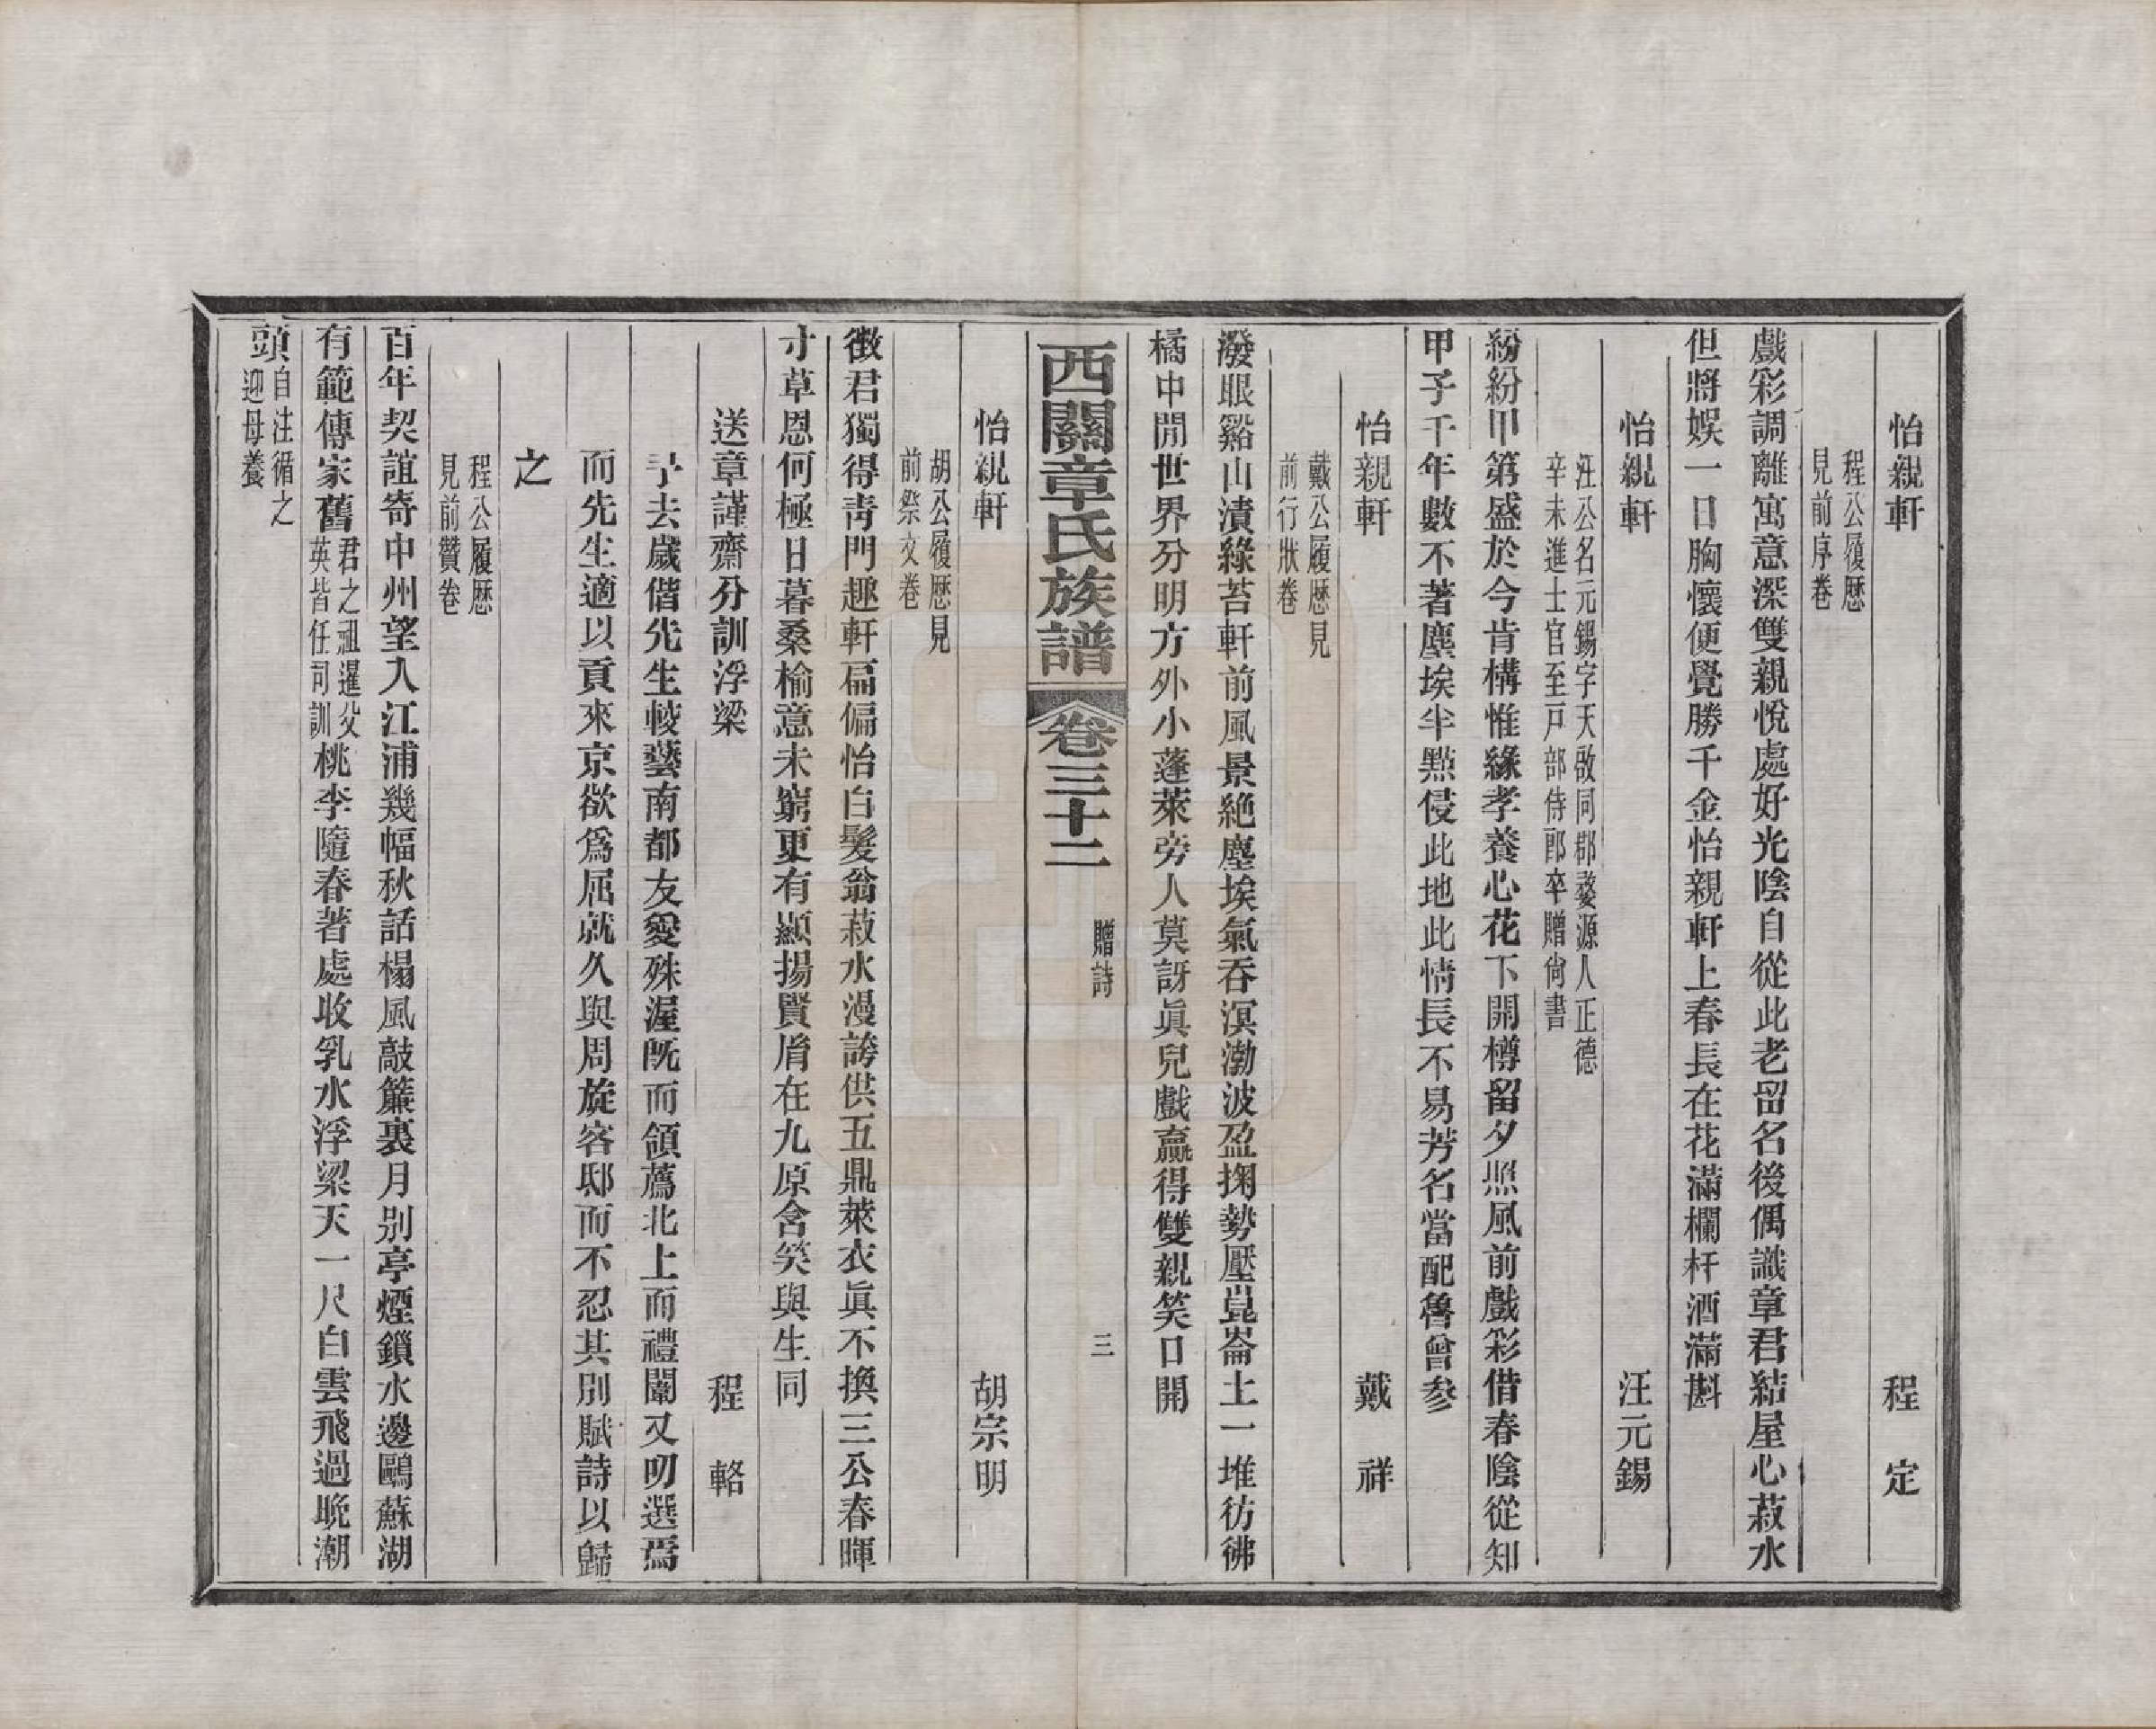 怡親軒　程　定
程公履歷
見前序卷
戲彩調離寓意深雙親悅處好光陰自從此老留名後偶識章君結屋心菽水
但將娛一日胸懷便覺勝千金怡親軒上春長在花滿欄杆酒滿斟
怡親軒　汪元錫
汪公名元錫字天啟同郡婺源人正德
辛未進士官至戸部侍郎卒贈尚書
紛紛甲第盛於今肯構惟緣孝養心花下開樽留夕照風前戲彩借春陰從知
甲子千年數不著塵埃半㸃侵此地此情長不易芳名當配魯曾參
怡親軒　戴　祥
戴公履歷見
前行狀卷
潑眼谿山漬綠苔軒前風景絕塵埃氣吞溟渤波盈掬勢壓崑崙土一堆彷彿
橘中閒世界分明方外小蓬萊旁人莫訝眞兒戲贏得雙親笑口開
西關章氏族譜　卷三十二　贈詩　三
怡親軒　胡宗明
胡公履歷見
前祭文卷
徵君獨得靑門趣軒扁偏怡白髮翁菽水漫誇供五鼎萊衣眞不換三公春暉
寸草恩何極日暮桑榆意未窮更有顯揚賢胤在九原含笑與生同
送章謹齋分訓浮梁　程　輅
予去歲偕先生較藝南都友愛殊渥旣而領薦北上而禮闈又叨選焉
而先生適以貢來京欲爲屈就久與周旋客邸而不忍其別賦詩以歸
之
程公履歷
見前贊卷
百年契誼寄中州望入江浦幾幅秋話榻風敲簾裏月別亭煙鎖水邊鷗蘇湖
有範傳家舊君之祖暹父英皆任司訓桃李隨春著處收乳水浮梁天一尺白雲飛過晚潮
頭自注循之迎母養